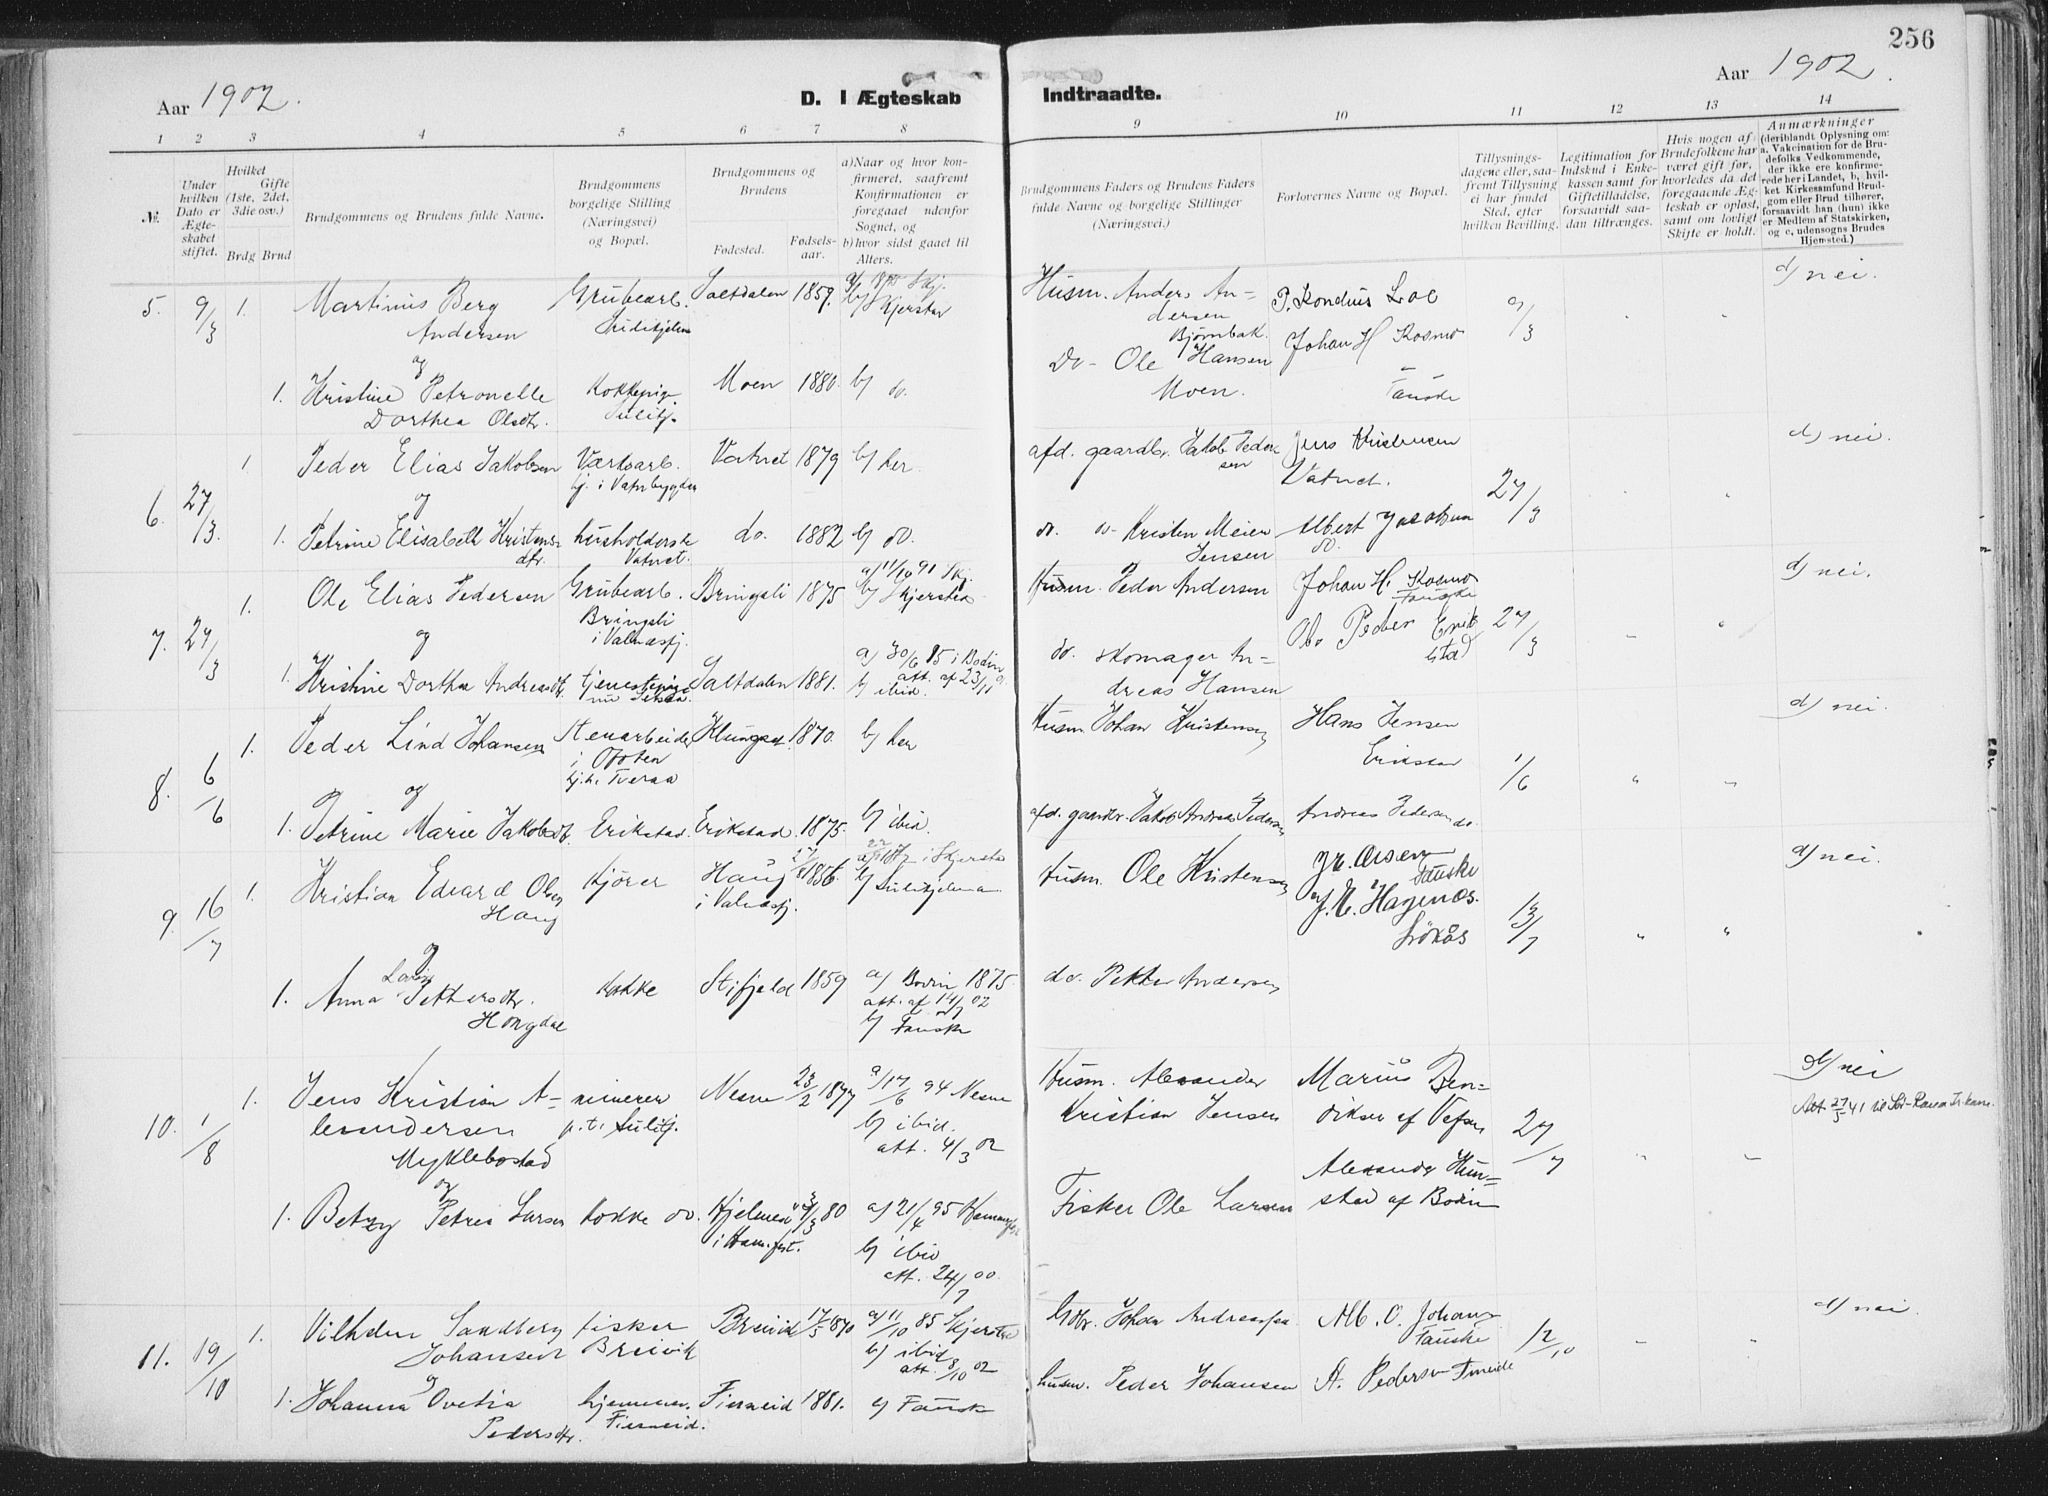 256
Aar 1902.
D. I Ægteskab Indtraadte.
Aar 1902.
1 2 3 4 5 6 7 8 9 10 11 12 13 14
No.
Under hvilken Dato er Ægteskabet stiftet.
Hvilket Gifte (1ste, 2det, 3die osv.)
Brdg Brud
Brudgommens og Brudens fulde Navne.
Brudgommens borgelige Stilling (Næringsvei) og Bopæl.
Brudgommens og Brudens
Fødested. Fødselsaar.
a) Naar og hvor konfirmeret, saafremt Konfirmationen er foregaaet udenfor Sognet, og
b) hvor sidst gaaet til Alters.
Brudgommens Faders og Brudens Faders fulde Navne og borgelige Stillinger (Næringsvei.)
Forlovernes Navne og Bopæl.
Tillysningsdagene eller, saafremt Tillysning ei har fundet Sted, efter hvilken Bevilling.
Legitimation for Indskud i Enkekassen samt for Giftetilladelse, forsaavidt saadan tiltrænges.
Hvis nogen af Brudefolkene har været gift før, hvorledes da det foregaaende Ægteskab er opløst, samt om lovligt Skifte er holdt.
Anmærkninger (deriblandt Oplysning om: a. Vakcination for de Brudefolks Vedkommende, der ikke ere konfirmerede her i Landet, b, hvilket Kirkesamfund Brudgom eller Brud tilhører, forsaavidt han (hun) ikke er Medlem af Statskirken, og c, udensogns Brudes Hjemsted.)
5. 9/3 1. Martinus Berg Andersen Grubearb. Saltdalen 1859. b) Skjerstad Husm. Anders Andersen Bjørnbak. Johan H Kosmo 9/3 d) nei.
og
1. Kristine Petronelle Dorthea Olsdtr. Kokkepige Sulitj. Moen 1880. b) do. Do- Ole Hansen Moen. Fauske
6. 27/3. 1. Peder Elias Jakobsen Værksarb. bj. i Vatnbygden Vatnet 1879 b) her. afd. gaardbr. Jakob Pedersen Jens Kristensen Vatnet. 27/3 d) nei.
og
1. Petrine Elisabeth Kristensdtr. husholderske Vatnet. do. 1882 b) do. do. do- Kristen Meier Jensen Albert Jacobsen do.
7. 27/3 1. Ole Elias Pedersen Grubearb. Bringsli i Valnæsfj. Bringsli 1875 a) 11/10 91 Skj. b) Skjerstad Husm. Peder Andersen Johan H. Kosmo Fauske 27/3 d) nei.
og
1. Kristine Dorthea Andreasdtr. tjenestepige Saltdalen 1881. a) 30/6 85 i Bodin att. af 23/11 b) ibid. do. skomager Andreas Hansen Peder Erikstad
8. 6/6 1. Peder Lind Johansen Stenarbeider i Ofoten bj. h. Tveraa 1870. b) her Husm. Johan Kristensen Hans Jensen Erikstad 1/6 d) nei.
og
1. Petrine Marie Jakobsdt. Erikstad. Erikstad. 1875. b) ibid. afd. gaardbr. Jakob Andreas Pedersen Andreas Pedersen do.
9. 16/7 1. Kristian Edvard Olsen Haug kjører Haug i Valnæsfj. 1856 i Skjerstad b) Sulitjelma Husm. Ole Kristensen Fauske 13/7 d) nei.
og
1. Anna Lovise Pettersdtr. Kokke Stifjeld 1859 a) Bodin 1875 att. af 14/7 02 b) Fauske do. Petter Andersen
10. 1/8 1. Jens Kristian Alexandersen Myklebostad minerer p.t. Sulitj. Nesne 23/2 1877 a) 17/6 94 Nesne b) ibid. att. 4/3 02 Husm. Alexander Kristian Jensen Marius Benediksen af Vefsen 27/7 d) nei
Att 27/5 41 til Sør-Rana
og
1. Betzy Petrea Larsen Kokke do. Kjelmesø i Ham.fest. 80 a) 21/4 95 b) ibid att. 24/7 00. Fisker Ole Larsen Alexander Hunstad af Bodin
11. 19/10 1. Vilhelm Sandberg Johansen fisker Breivik Breivik 17/5 1870 a) 11/10 85 Skjerstad b) ibid att. 8/10 02 Gdbr. Johan Andreassen Alb. O. Johansen Fauske 12/10 d) nei.
og
1. Johanna Ovedia Pedersdtr. hjemmev. Finneid. Finneid 1881. b) Fauske husm. Peder Johansen A. Pedersen Finneide